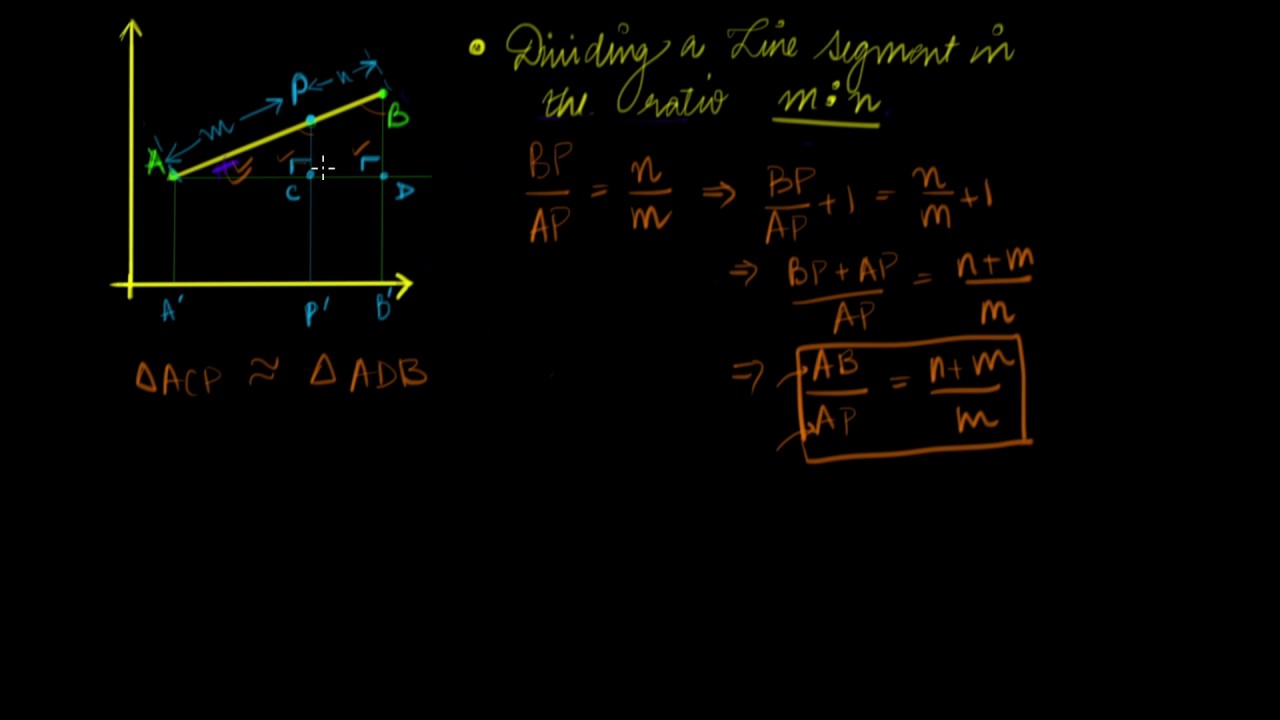 • Dividing a Line segment in
the ratio m:n
P n
m
A B
C D
A' P' B'
BP/AP = n/m ⇒ BP/AP + 1 = n/m + 1
⇒ BP + AP/AP = n+m/m
⇒ AB/AP = n+m/m
ΔACP ≈ Δ ADB